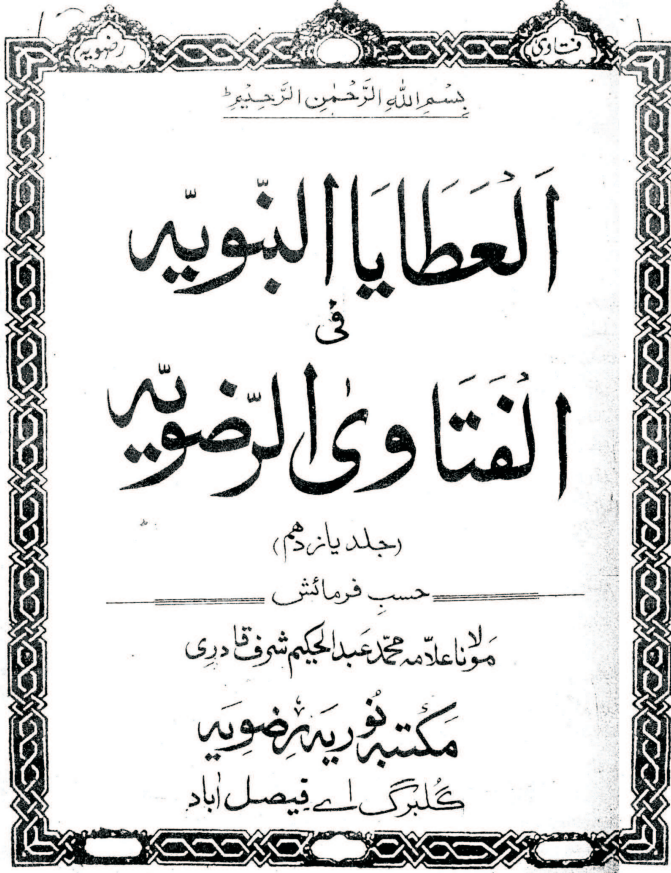 فتاویٰ رضویہ
بِسْمِ اللهِ الرَّحْمٰنِ الرَّحِيْمِ ط
اَلْعَطَايَا النَّبویّه
فی
الفَتَاویٰ الرّضویّه
(جلد یازدهم)
حسبِ فرمائش
مولانا علّامہ محمّد عبد الحکیم شرف قادری
مکتبہ نُوریہ رضویہ
گلبرگ اے فیصل اباد